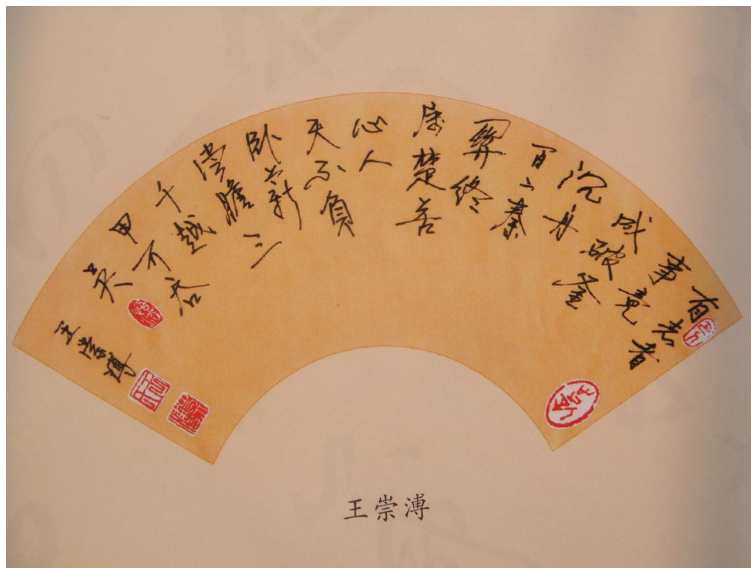 有志者
事竟
成破釜
沉舟
百二秦
關終
屬楚苦
心人
天不負
卧薪
嘗膽三
千越
甲可吞
吴
王崇溥
王崇溥